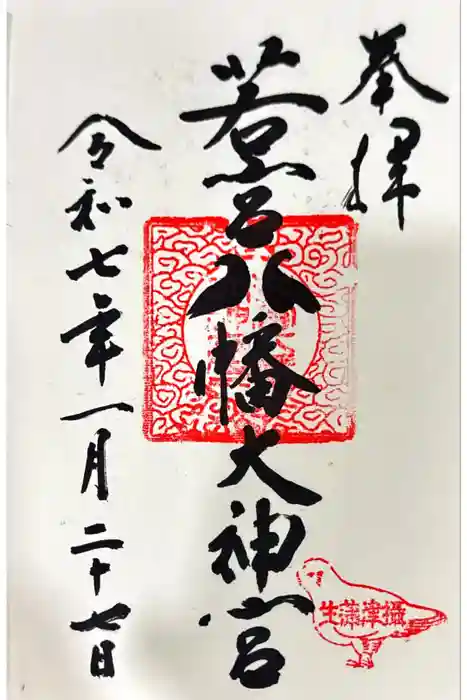 奉拝
若宮八幡大神宮
令和七年一月二十七日
摂津蒲生